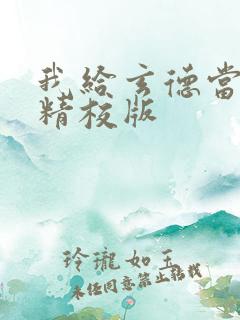 我给玄德当
精校版
玲珑如玉
未经同意禁止转载